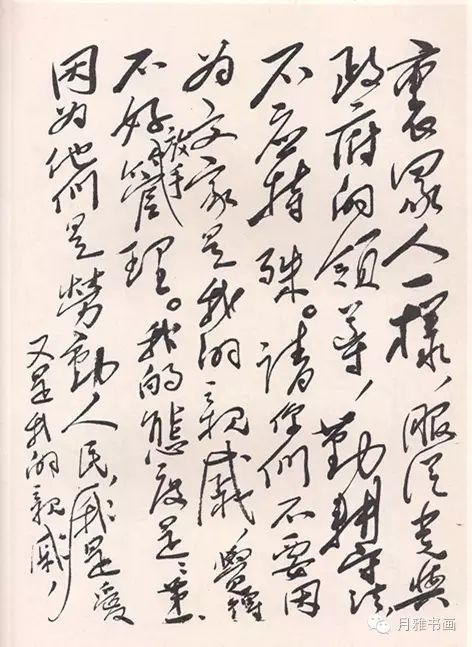 裏眾人一樣，服從党與
政府的領導，勤耕守法，
不應特殊。請你們不要因
为文家是我的親戚，覺得
不好放手管理。我的態度是：第一、
因为他們是勞動人民，我是愛
又是我的親戚，
月雅书画